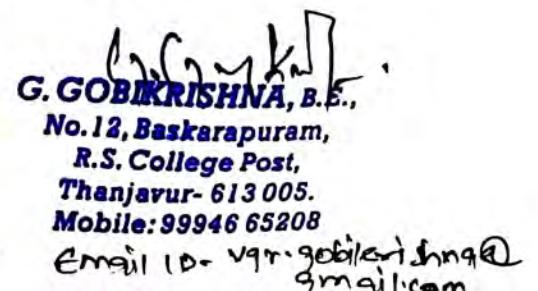 G. GOBIKRISHNA, B.E.,
No.12, Baskarapuram,
R.S. College Post,
Thanjavur- 613 005.
Mobile: 99946 65208
Email ID-
gmail.com